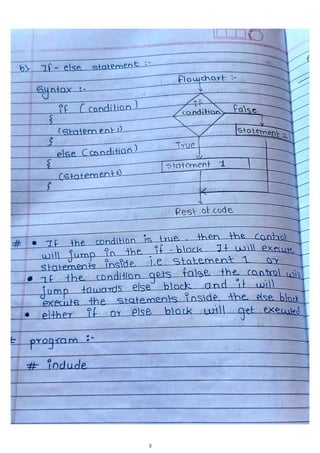 b) If - else statement :-
flowchart :-
Syntax :-
if (condition)
{
(Statement 1)
}
else (condition)
{
(Statement
}
If
condition
false
Statement 2
True
Statement 1
Rest of code
# • If the condition is true, then the control
will jump in the if - block. It will execute
statements inside i.e statement 1 or
• If the condition gets false the control will
jump towards else block and it will
execute the statements inside the else block
• either if or else block will get executed
program :-
# include